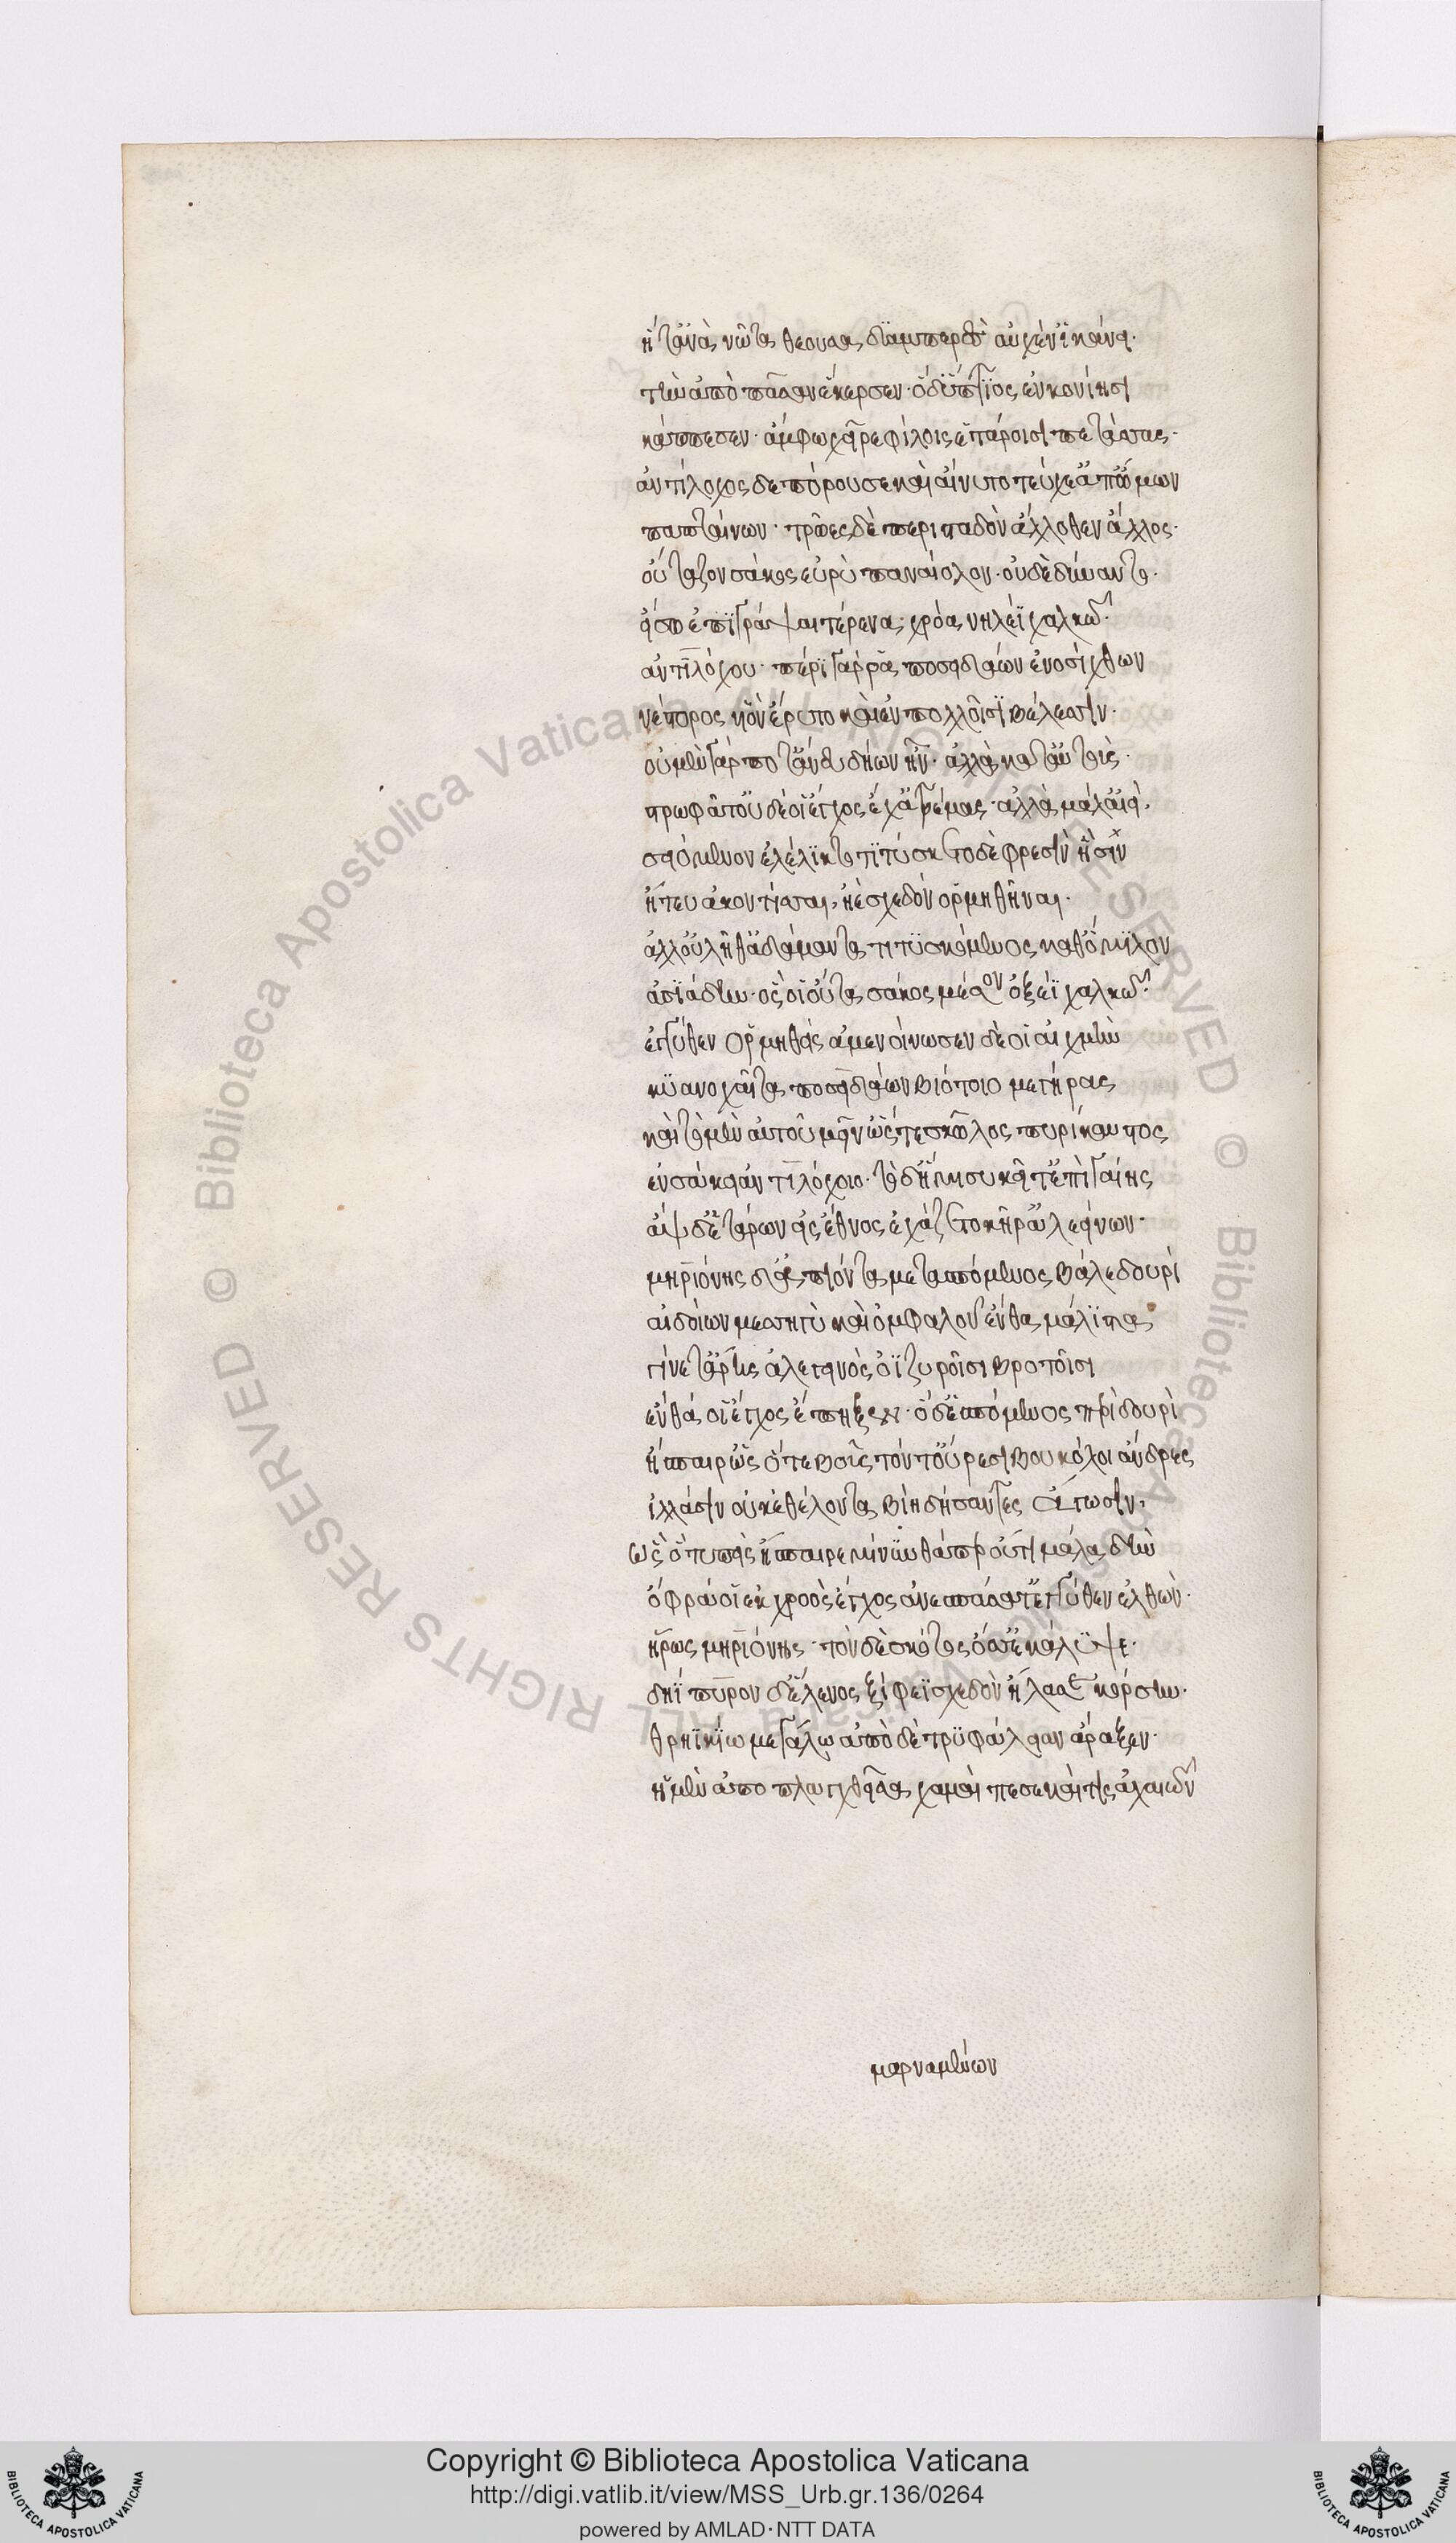 ἥτ' ἀνὰ νῶτα θέουσα διαμπερὲς αὐχέν' ἱκάνει·
τὴν ἀπὸ πᾶσαν ἔκερσεν· ὁ δ' ὕπτιος ἐν κονίησι
κάππεσεν· ἄμφω χεῖρε φίλοις ἑτάροισι πετάσσας·
ἀντίλοχος δ' ἐπόρουσε καὶ αἴνυτο τεύχε' ἀπ' ὤμων
παπταίνων· τρῶες δὲ περισταδὸν ἄλλοθεν ἄλλος·
οὔταζον σάκος εὐρὺ παναίολον· οὐδὲ δύναντο·
εἴσω ἐπιγράψαι τέρενα χρόα νηλέϊ χαλκῶ·
ἀντιλόχου· πέρι γάρ ῥα ποσειδάων ἐνοσίχθων
νέστορος υἱὸν ἔρυτο καὶ ἐν πολλοῖσι βέλεσιν·
οὐ μὲν γάρ ποτ' ἄνευ δηίων ἦν· ἀλλὰ κατ' αὐτοὺς·
στρωφᾶτ' οὐδέ οἱ ἔγχος ἔχ' ἀτρέμας· ἀλλὰ μάλ' αἰεὶ,
σειόμενον ἐλέλικτο τιτύσκετο δὲ φρεσὶν ᾗσιν
ἤ τευ ἀκοντίσσαι, ἠὲ σχεδὸν ὁρμηθῆναι·
ἀλλ' οὐ λῆθ' ἀδάμαντα τιτυσκόμενος καθ' ὅμιλον
ἀσιάδην· ὅς οἱ οὖτα σάκος μέσον ὀξέϊ χαλκῶ·
ἐγγύθεν ὁρμηθείς ἀμενήνωσεν δέ οἱ αἰχμὴν
κυανοχαῖτα ποσειδάων βιότοιο μεγήρας
καὶ τὸ μὲν αὐτοῦ μεῖν' ὥς τε σκῶλος πυρίκαυστος
ἐν σάκει ἀντιλόχοιο· τὸ δ' ἥμισυ κεῖτ' ἐπὶ γαίης
ἂψ δ' ἑτάρων εἰς ἔθνος ἐχάζετο κῆρ' ἀλεείνων·
μηριόνης δ' ἀπιόντα μετασπόμενος βάλε δουρὶ
αἰδοίων μεσσηγὺ καὶ ὀμφαλοῦ ἔνθα μάλιστα
γίνετ' ἄρης ἀλεγεινὸς ὀϊζυροῖσι βροτοῖσι
ἔνθά οἱ ἔγχος ἔπηξεν· ὁ δ' ἑσπόμενος περὶ δουρὶ
ἤσπαιρ' ὡς ὅτε βοῦς τόν τ' οὔρεσι βουκόλοι ἄνδρες
ἰλλάσιν οὐκ ἐθέλοντα βίη δήσαντες ἄγωσιν,
ὣς ὁ τυπεὶς ἤσπαιρε μίνυνθά περ οὔτι μάλα δὴν
ὄφρά οἱ ἐκ χροὸς ἔγχος ἀνεσπάσατ' ἐγγύθεν ἐλθών·
ἥρως μηριόνης· τὸν δὲ σκότος ὄσσ' ἐκάλυψε·
δηίπυρον δ' ἕλενος ξίφεϊ σχεδὸν ἤλασε κόρσην·
θρηϊκίω μεγάλω ἀπὸ δὲ τρυφάλειαν ἄραξεν·
ἡ μὲν ἀποπλαγχθεῖσα χαμαὶ πέσε καί τις ἀχαιῶν
μαρναμένων
Copyright © Biblioteca Apostolica Vaticana
http://digi.vatlib.it/view/MSS_Urb.gr.136/0264
powered by AMLAD·NTT DATA